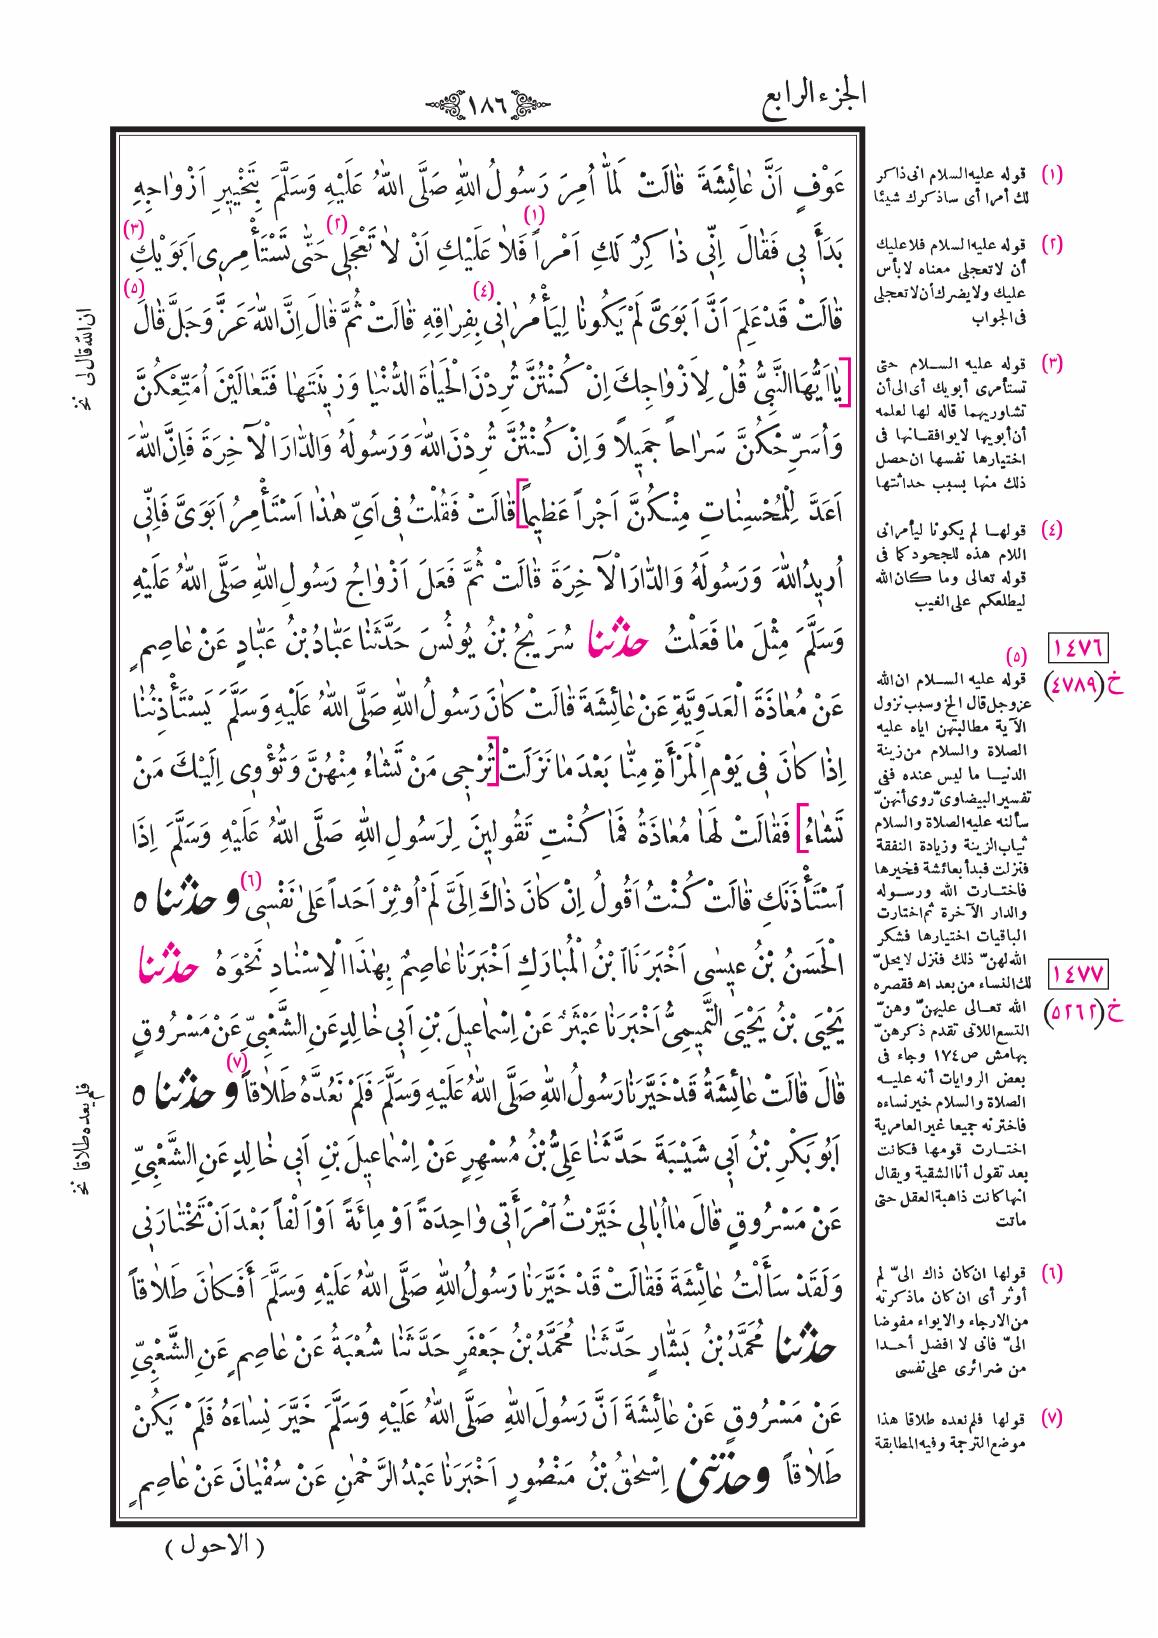 الجزء الرابع
١٨٦
عَوْفٍ اَنَّ عَائِشَةَ قَالَتْ لَمَّا اُمِرَ رَسُولُ اللهِ صَلَّى اللهُ عَلَيْهِ وَسَلَّمَ بِتَخْيِيرِ اَزْوَاجِهِ
بَدَأَ بِي فَقَالَ اِنِّي ذَاكِرٌ لَكِ اَمْراً (١) فَلَا عَلَيْكِ اَنْ لَا تَعْجَلِي (٢) حَتّٰى تَسْتَأْمِرِي اَبَوَيْكِ (٣)
قَالَتْ قَدْ عَلِمَ اَنَّ اَبَوَىَّ لَمْ يَكُونَا لِيَأْمُرَانِي (٤) بِفِرَاقِهِ قَالَتْ ثُمَّ قَالَ اِنَّ اللهَ عَزَّ وَجَلَّ قَالَ (٥)
[يَا اَيُّهَا النَّبِيُّ قُلْ لِاَزْوَاجِكَ اِنْ كُنْتُنَّ تُرِدْنَ الْحَيَاةَ الدُّنْيَا وَزِينَتَهَا فَتَعَالَيْنَ اُمَتِّعْكُنَّ
وَاُسَرِّحْكُنَّ سَرَاحاً جَمِيلاً وَاِنْ كُنْتُنَّ تُرِدْنَ اللهَ وَرَسُولَهُ وَالدَّارَ الْآخِرَةَ فَاِنَّ اللهَ
اَعَدَّ لِلْمُحْسِنَاتِ مِنْكُنَّ اَجْراً عَظِيماً] قَالَتْ فَقُلْتُ فِي اَىِّ هٰذَا اَسْتَأْمِرُ اَبَوَىَّ فَاِنِّي
اُرِيدُ اللهَ وَرَسُولَهُ وَالدَّارَ الْآخِرَةَ قَالَتْ ثُمَّ فَعَلَ اَزْوَاجُ رَسُولِ اللهِ صَلَّى اللهُ عَلَيْهِ
وَسَلَّمَ مِثْلَ مَا فَعَلْتُ حدثنا سُرَيْجُ بْنُ يُونُسَ حَدَّثَنَا عَبَّادُ بْنُ عَبَّادٍ عَنْ عَاصِمٍ
عَنْ مُعَاذَةَ الْعَدَوِيَّةِ عَنْ عَائِشَةَ قَالَتْ كَانَ رَسُولُ اللهِ صَلَّى اللهُ عَلَيْهِ وَسَلَّمَ يَسْتَأْذِنُنَا
اِذَا كَانَ فِي يَوْمِ الْمَرْأَةِ مِنَّا بَعْدَ مَا نَزَلَتْ [تُرْجِي مَنْ تَشَاءُ مِنْهُنَّ وَتُؤْوِي اِلَيْكَ مَنْ
تَشَاءُ] فَقَالَتْ لَهَا مُعَاذَةُ فَمَا كُنْتِ تَقُولِينَ لِرَسُولِ اللهِ صَلَّى اللهُ عَلَيْهِ وَسَلَّمَ اِذَا
اسْتَأْذَنَكِ قَالَتْ كُنْتُ اَقُولُ اِنْ كَانَ ذَاكَ اِلَىَّ لَمْ اُوثِرْ اَحَداً عَلٰى نَفْسِي (٦) وحدثناه
الْحَسَنُ بْنُ عِيسٰى اَخْبَرَنَا ابْنُ الْمُبَارَكِ اَخْبَرَنَا عَاصِمٌ بِهٰذَا الْاِسْنَادِ نَحْوَهُ حدثنا
يَحْيَى بْنُ يَحْيَى التَّمِيمِيُّ اَخْبَرَنَا عَبْثَرٌ عَنْ اِسْمَاعِيلَ بْنِ اَبِي خَالِدٍ عَنِ الشَّعْبِيِّ عَنْ مَسْرُوقٍ
قَالَ قَالَتْ عَائِشَةُ قَدْ خَيَّرَنَا رَسُولُ اللهِ صَلَّى اللهُ عَلَيْهِ وَسَلَّمَ فَلَمْ نَعُدَّهُ طَلَاقاً (٧) وحدثناه
اَبُو بَكْرِ بْنُ اَبِي شَيْبَةَ حَدَّثَنَا عَلِيُّ بْنُ مُسْهِرٍ عَنْ اِسْمَاعِيلَ بْنِ اَبِي خَالِدٍ عَنِ الشَّعْبِيِّ
عَنْ مَسْرُوقٍ قَالَ مَا اُبَالِي خَيَّرْتُ امْرَأَتِي وَاحِدَةً اَوْ مِائَةً اَوْ اَلْفاً بَعْدَ اَنْ تَخْتَارَنِي
وَلَقَدْ سَأَلْتُ عَائِشَةَ فَقَالَتْ قَدْ خَيَّرَنَا رَسُولُ اللهِ صَلَّى اللهُ عَلَيْهِ وَسَلَّمَ أَفَكَانَ طَلَاقاً
حدثنا مُحَمَّدُ بْنُ بَشَّارٍ حَدَّثَنَا مُحَمَّدُ بْنُ جَعْفَرٍ حَدَّثَنَا شُعْبَةُ عَنْ عَاصِمٍ عَنِ الشَّعْبِيِّ
عَنْ مَسْرُوقٍ عَنْ عَائِشَةَ اَنَّ رَسُولَ اللهِ صَلَّى اللهُ عَلَيْهِ وَسَلَّمَ خَيَّرَ نِسَاءَهُ فَلَمْ يَكُنْ
طَلَاقاً وحدثني اِسْحٰقُ بْنُ مَنْصُورٍ اَخْبَرَنَا عَبْدُ الرَّحْمٰنِ عَنْ سُفْيَانَ عَنْ عَاصِمٍ
( الاحول )
(١) قوله عليه السلام انى ذاكر
لك أمرا أى سأذكرك شيئا
(٢) قوله عليه السلام فلا عليك
أن لا تعجلى معناه لا بأس
عليك ولا يضرك أن لا تعجلى
فى الجواب
(٣) قوله عليه السلام حتى
تستأمرى أبويك أى الى أن
تشاوريهما قاله لها لعلمه
أن أبويها لا يوافقانها فى
اختيارها نفسها ان حصل
ذلك منها بسبب حداثتها
(٤) قولها لم يكونا ليأمرانى
اللام هذه للجحود كما فى
قوله تعالى وما كان الله
ليطلعكم على الغيب
(٥)
قوله عليه السلام ان الله
عز وجل قال الخ وسبب نزول
الآية مطالبتهن اياه عليه
الصلاة والسلام من زينة
الدنيا ما ليس عنده ففى
تفسير البيضاوىّ روى أنهنّ
سألنه عليه الصلاة والسلام
ثياب الزينة وزيادة النفقة
فنزلت فبدأ بعائشة فخيرها
فاختارت الله ورسوله
والدار الآخرة ثم اختارت
الباقيات اختيارها فشكر
الله لهنّ ذلك فنزل لا يحلّ
لك النساء من بعد اه فقصره
الله تعالى عليهنّ وهنّ
التسع اللاتى تقدم ذكرهنّ
بهامش ص ١٧٤ وجاء فى
بعض الروايات أنه عليه
الصلاة والسلام خير نساءه
فاخترنه جميعا غير العامرية
اختارت قومها فكانت
بعد تقول أنا الشقية ويقال
انها كانت ذاهبة العقل حتى
ماتت
(٦) قولها ان كان ذاك الىّ لم
أوثر أى ان كان ما ذكرته
من الارجاء والايواء مفوضا
الىّ فانى لا افضل أحدا
من ضرائرى على نفسى
(٧) قولها فلم نعده طلاقا هذا
موضع الترجمة وفيه المطابقة
١٤٧٦
خ (٤٧٨٩)
١٤٧٧
خ (٥٢٦٢)
ان الله قال لى نخ
فلم يعده طلاقا نخ